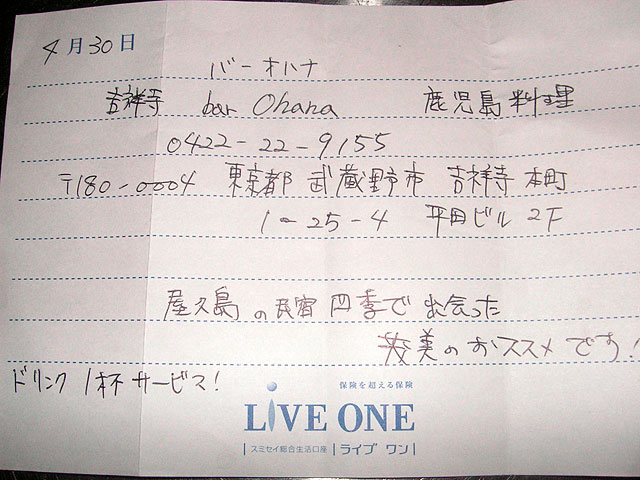 4月30日
バーオハナ
吉祥寺 bar Ohana 鹿児島料理
0422-22-9155
〒180-0004 東京都 武蔵野市 吉祥寺 本町
1-25-4 平田ビル 2F
屋久島の民宿 四季で 出会った
美のおススメです!
ドリンク 1杯 サービス!
保険を超える保険
LiVE ONE
スミセイ総合生活口座 ライブ ワン